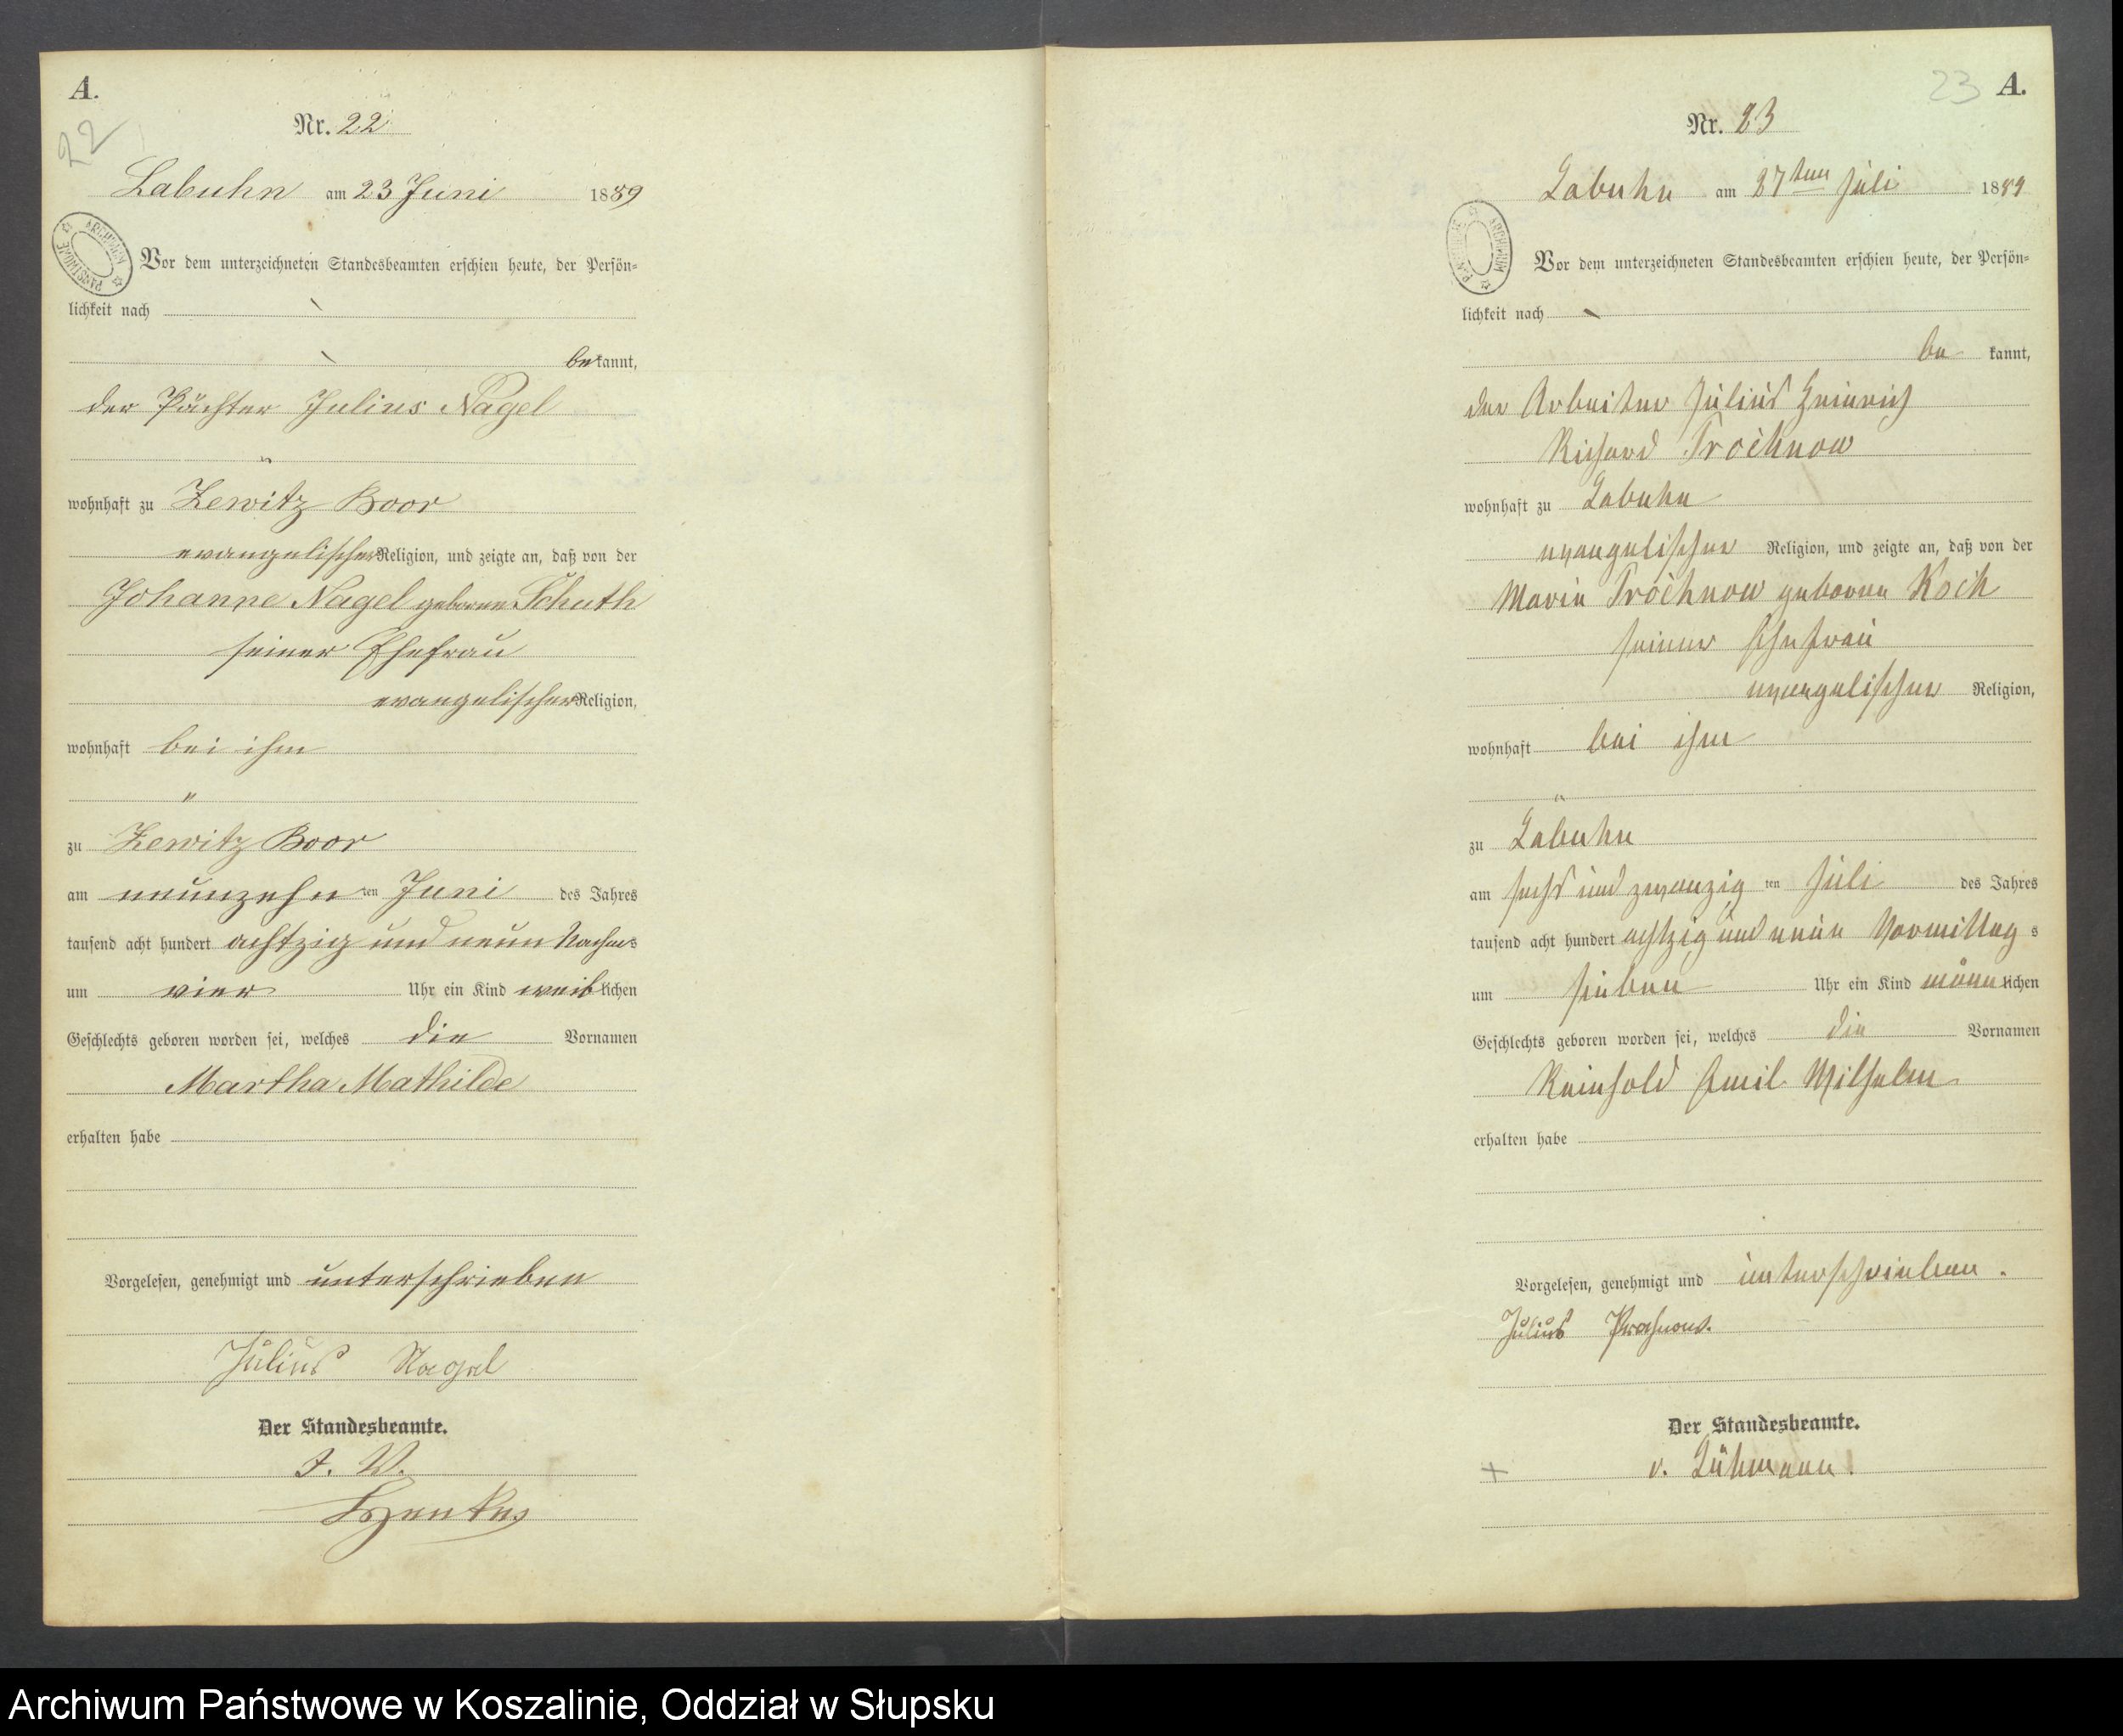 A.
22
Nr. 22
Labuhn am 23 Juni 1889
ARCHIWUM PAŃSTWOWE
Vor dem unterzeichneten Standesbeamten erschien heute, der Persön-
lichkeit nach
bekannt,
der Pächter Julius Nagel
wohnhaft zu Zewitz Boor
evangelischer Religion, und zeigte an, daß von der
Johanne Nagel geborene Schuth
seiner Ehefrau
evangelischer Religion,
wohnhaft bei ihm
"
zu Zewitz Boor
am neunzehn ten Juni des Jahres
tausend acht hundert achtzig und neun Nachm s
um vier Uhr ein Kind weiblichen
Geschlechts geboren worden sei, welches die Vornamen
Martha Mathilde
erhalten habe
Vorgelesen, genehmigt und unterschrieben
Julius Nagel
Der Standesbeamte.
I. V.
23 A.
Nr. 23
Labuhn am 27ten Juli 1889
ARCHIWUM PAŃSTWOWE
Vor dem unterzeichneten Standesbeamten erschien heute, der Persön-
lichkeit nach
be kannt,
der Arbeiter Julius Heinrich
Richard Prochnow
wohnhaft zu Labuhn
evangelischer Religion, und zeigte an, daß von der
Marie Prochnow geborne Koch
seiner Ehefrau
evangelischer Religion,
wohnhaft bei ihm
"
zu Labuhn
am sechs und zwanzig ten Juli des Jahres
tausend acht hundert achtzig und neun Vormittag s
um sieben Uhr ein Kind männlichen
Geschlechts geboren worden sei, welches die Vornamen
Reinhold Emil Wilhelm
erhalten habe
Vorgelesen, genehmigt und unterschrieben.
Julius Prochnow.
Der Standesbeamte.
v. Lühmann.
Archiwum Państwowe w Koszalinie, Oddział w Słupsku